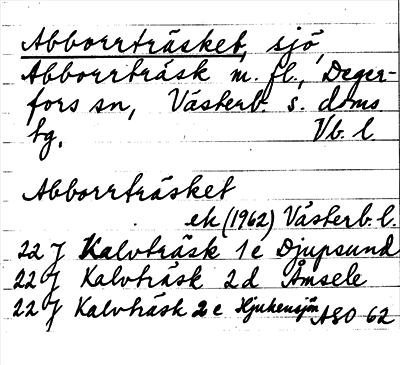 Abborrträsket, sjö,
Abborrträsk m. fl., Deger-
fors sn, Västerb. s. doms
tg. Vb. l.
Abborrträsket
ek (1962) Västerb. l.
22 J Kalvträsk 1 e Djupsund
22 J Kalvträsk 2 d Åmsele
22 J Kalvträsk 2 e Hjukensjön
ASO 62